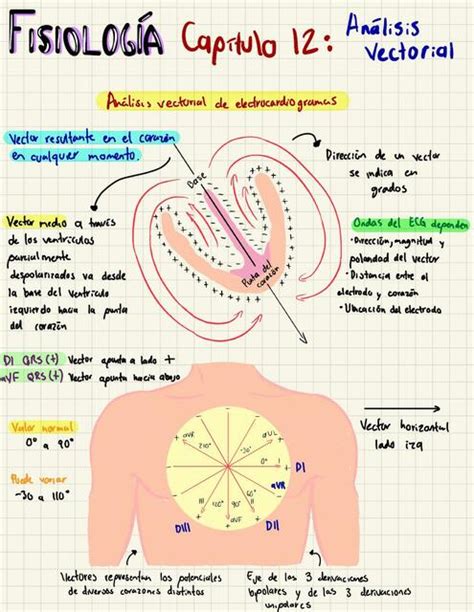 FISIOLOGÍA Capítulo 12: Análisis
Vectorial
Análisis vectorial de electrocardiogramas
Vector resultante en el corazón
en cualquier momento.
Base
Punta del
corazón
Dirección de un vector
se indica en
grados
Vector medio a través
de los ventrículos
parcialmente
despolarizados va desde
la base del ventrículo
izquierdo hacia la punta
del corazón
Ondas del ECG dependen
•Dirección, magnitud y
polaridad del vector
•Distancia entre el
electrodo y corazón
•Ubicación del electrodo
DI QRS (+) Vector apunta a lado +
aVF QRS (+) Vector apunta hacia abajo
Valor normal
0° a 90°
Puede variar
-30 a 110°
Vector horizontal
lado izq
aVR
aVL
210°
-30°
0° I
DI
aVR
60°
III
120°
90°
II
aVF
DIII
DII
Vectores representan los potenciales
de diversos corazones distintos
Eje de las 3 derivaciones
bipolares y de las 3 derivaciones
unipolares